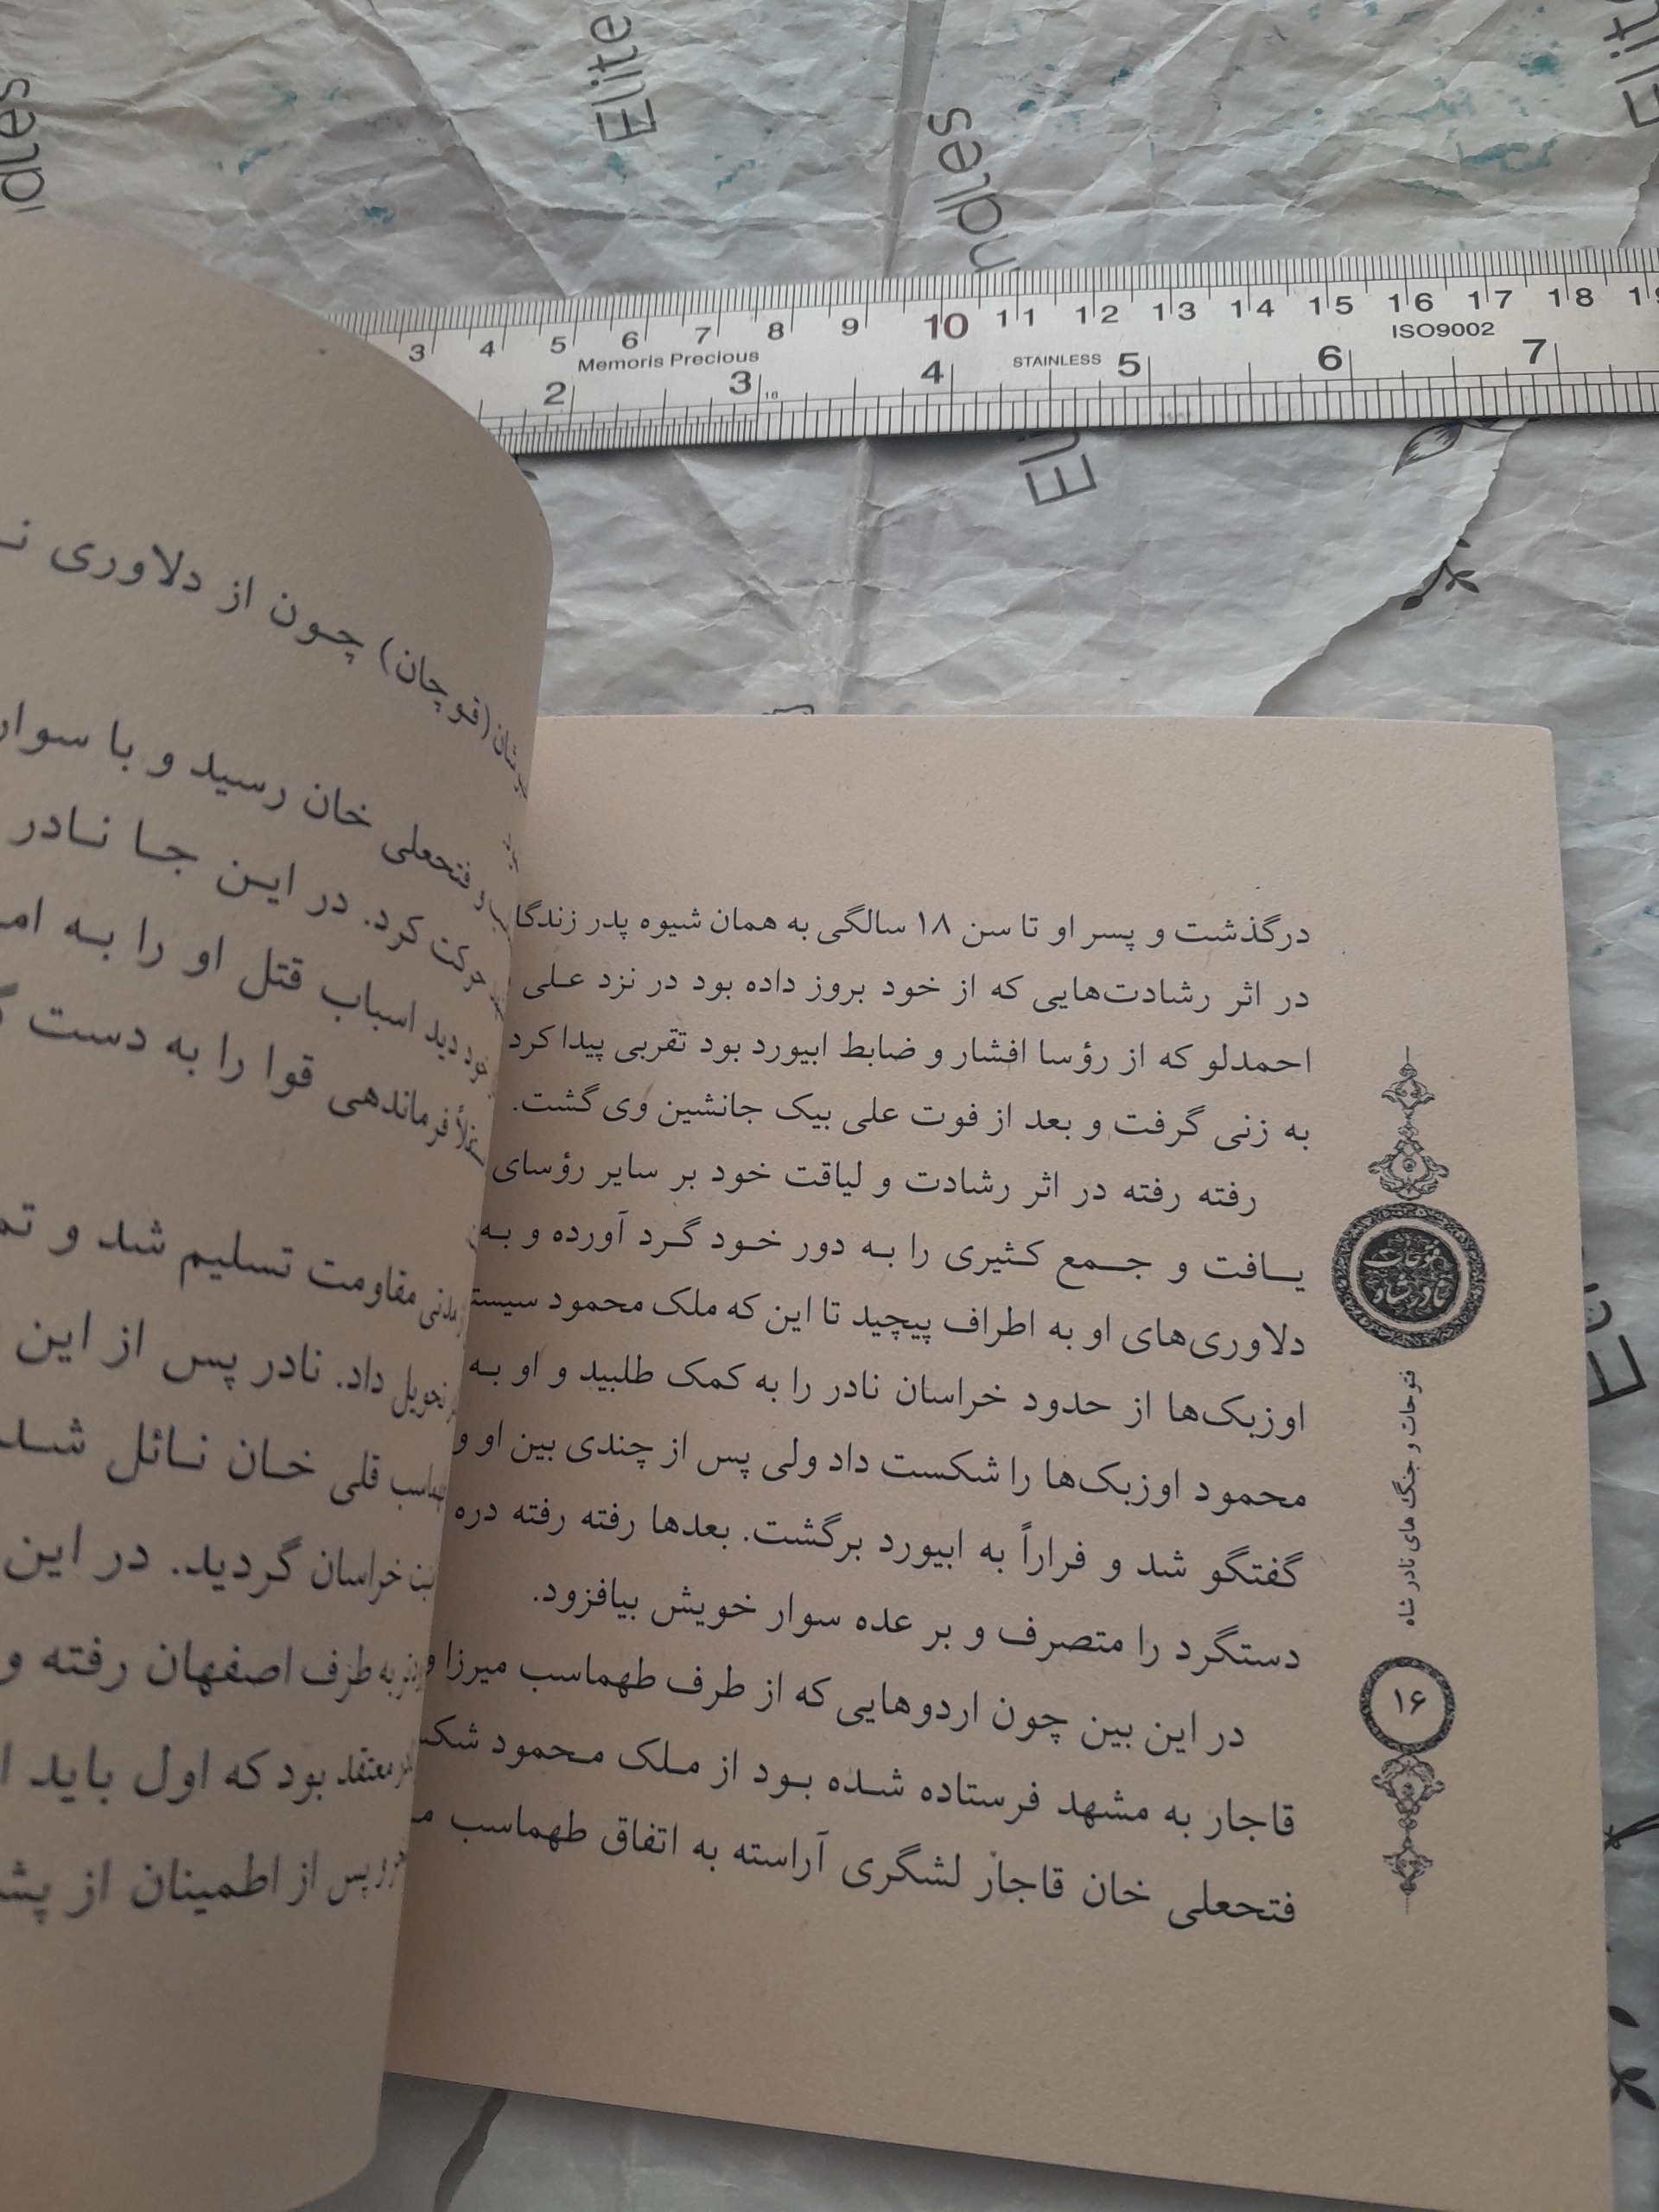 Elite
Elite
dles
ndles
3 4 5 6 7 8 9 10 11 12 13 14 15 16 17 18 19
Memoris Precious
STAINLESS
ISO9002
2 3 4 5 6 7
16
درگذشت و پسر او تا سن ۱۸ سالگی به همان شیوه پدر
در اثر رشادت‌هایی که از خود بروز داده بود در نزد علی
احمدلو که از رؤسا افشار و ضابط ابیورد بود تقربی پیدا کرد
به زنی گرفت و بعد از فوت علی بیک جانشین وی گشت.
رفته رفته در اثر رشادت و لیاقت خود بر سایر رؤسای
یافت و جمع کثیری را به دور خود گرد آورده و به
دلاوری‌های او به اطراف پیچید تا این که ملک محمود
اوزبک‌ها از حدود خراسان نادر را به کمک طلبید و او به
محمود اوزبک‌ها را شکست داد ولی پس از چندی بین او و
گفتگو شد و فراراً به ابیورد برگشت. بعدها رفته رفته دره
دستگرد را متصرف و بر عده سوار خویش بیافزود.
در این بین چون اردوهایی که از طرف طهماسب میرزا و
قاجار به مشهد فرستاده شده بود از ملک محمود
فتحعلی خان قاجار لشگری آراسته به اتفاق طهماسب
فتوحات نادرشاه
فتوحات و جنگ های نادر شاه
۱۶
(قوچان) چون از دلاوری
و فتحعلی خان رسید و با
حرکت کرد. در این جا نادر
خود دید اسباب قتل او را به
فرماندهی قوا را به دست
مقاومت تسلیم شد و
تحویل داد. نادر پس از این
قلی خان نائل
خراسان گردید. در این
به طرف اصفهان رفته و
معتقد بود که اول باید
پس از اطمینان از